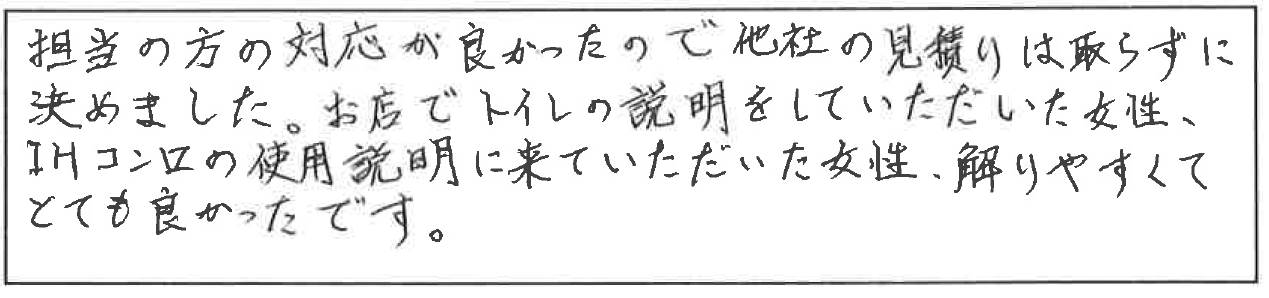 担当の方の対応が良かったので他社の見積りは取らずに
決めました。お店でトイレの説明をしていただいた女性、
IHコンロの使用説明に来ていただいた女性、解りやすくて
とても良かったです。